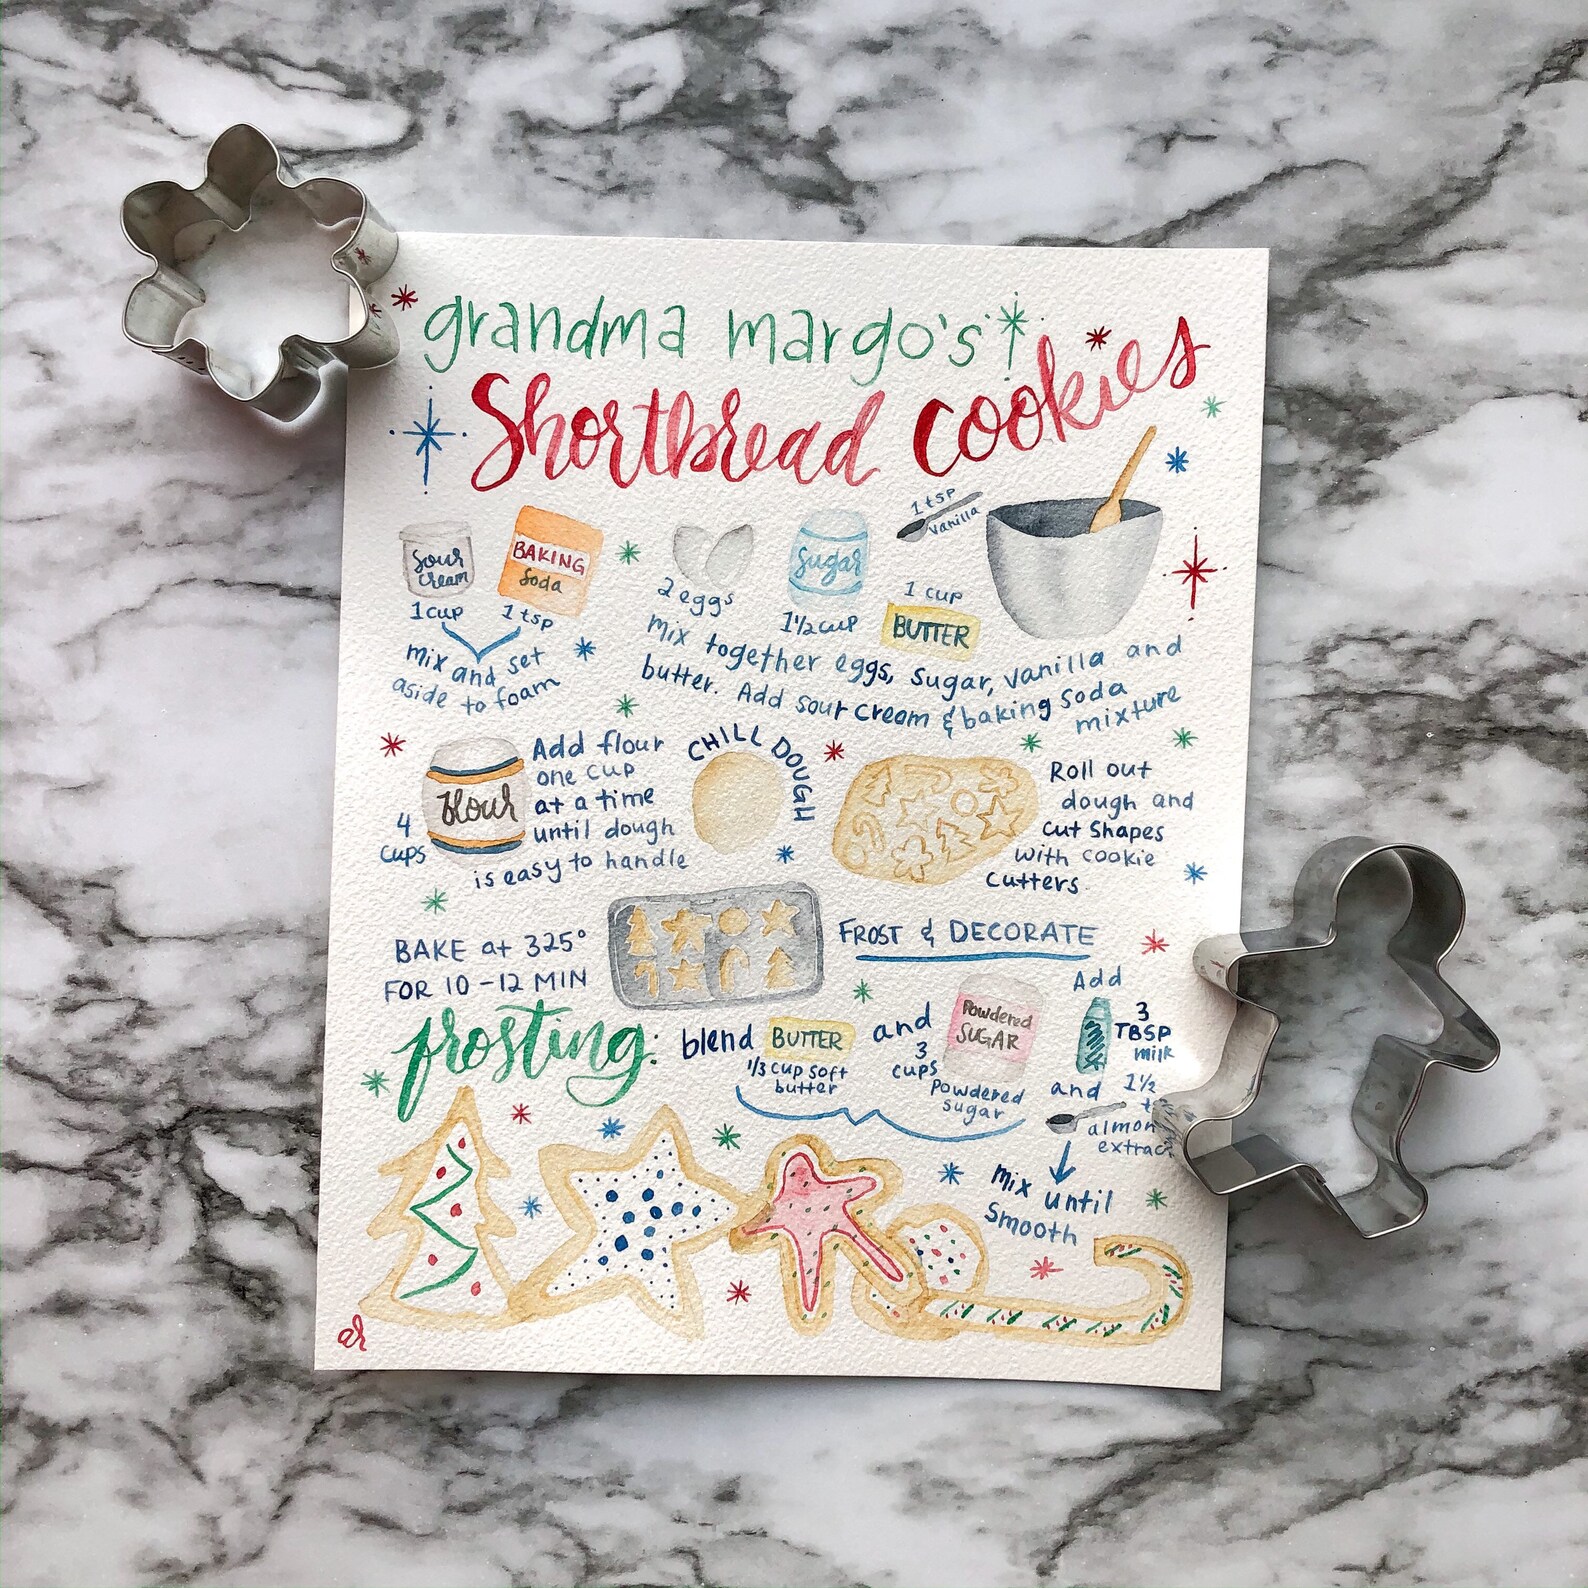 grandma margo's
Shortbread cookies
Sour
cream
1 cup
BAKING
Soda
1 tsp
mix and set
aside to foam
2 eggs
Sugar
1½ cup
1 tsp
vanilla
1 cup
BUTTER
mix together eggs, sugar, vanilla and
butter. Add sour cream & baking soda
mixture
flour
4
cups
Add flour
one cup
at a time
until dough
is easy to handle
CHILL DOUGH
Roll out
dough and
cut shapes
with cookie
cutters.
BAKE at 325°
FOR 10-12 MIN
FROST & DECORATE
frosting:
blend
BUTTER
1/3 cup soft
butter
and
3
cups
Powdered
SUGAR
powdered
sugar
Add
3
TBSP
milk
and
1½
extract
mix until
smooth
ar